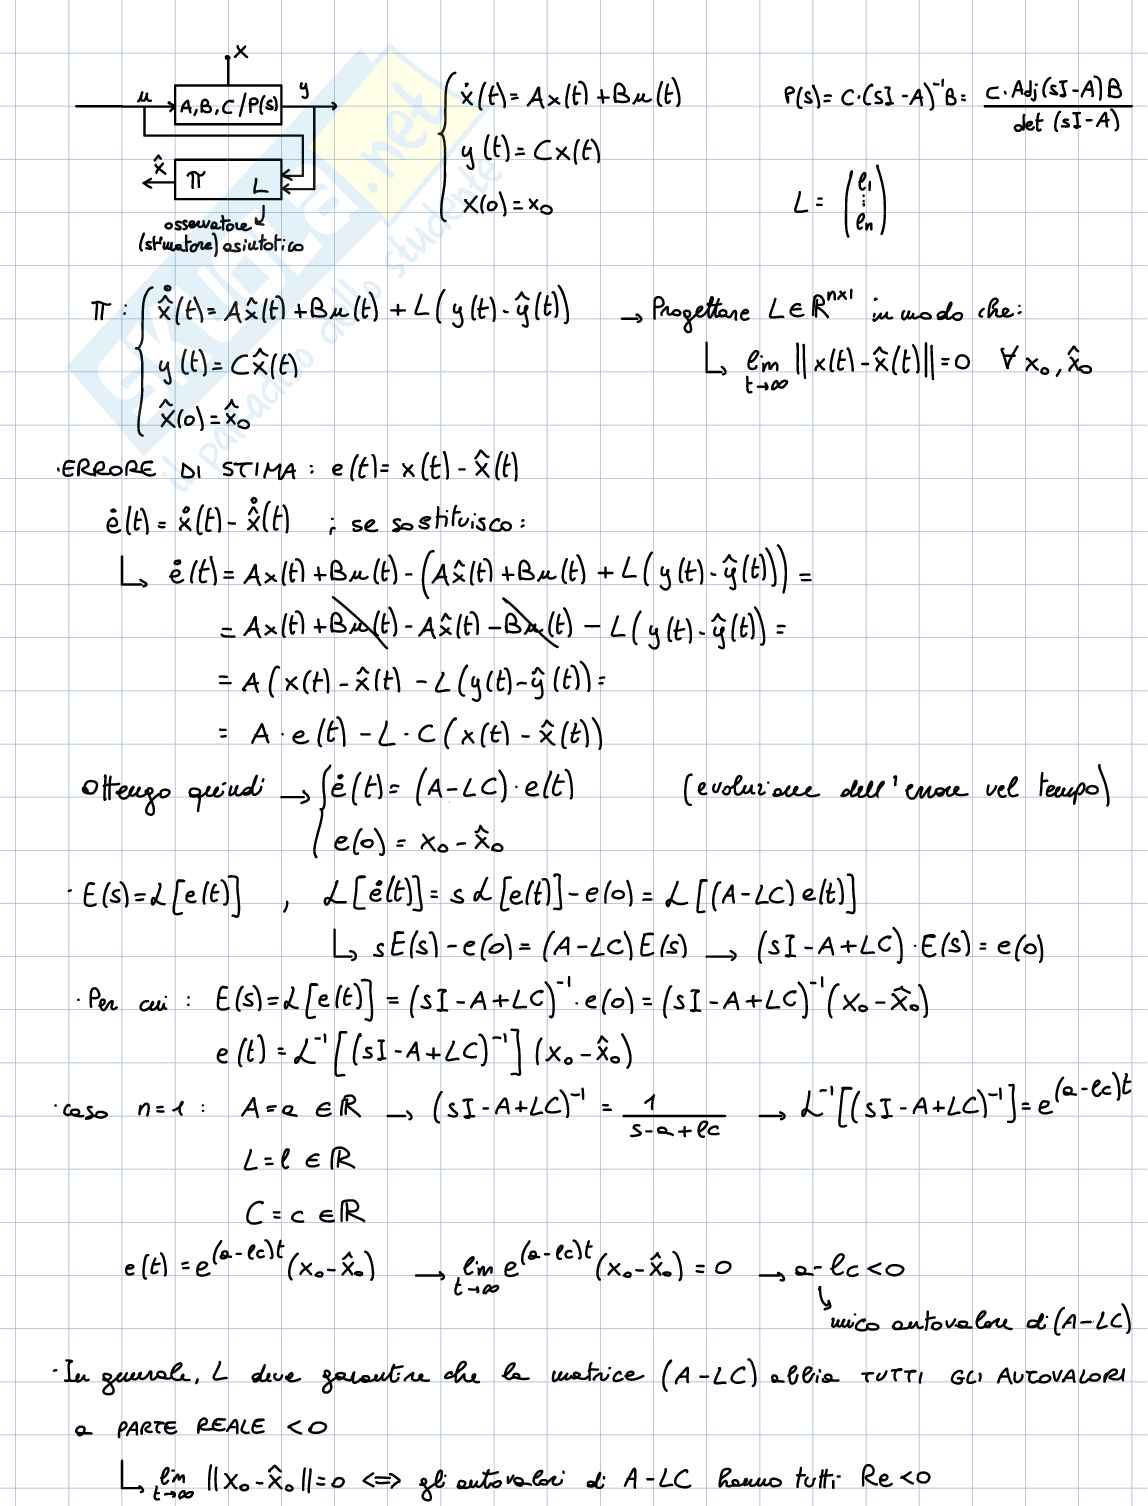 x
u A,B,C/P(s) y
x̂ π L
osservatore
(stimatore) asintotico
{ ẋ(t) = Ax(t) + Bu(t)
y(t) = Cx(t)
x(0) = x₀
P(s) = C·(sI-A)⁻¹B = C·Adj(sI-A)B / det(sI-A)
L = (l₁ ⋮ lₙ)
π : { x̂̇(t) = Ax̂(t) + Bu(t) + L(y(t) - ŷ(t)) → Progettare L ∈ ℝⁿˣ¹ in modo che:
y(t) = Cx̂(t) ↳ lim t→∞ ||x(t) - x̂(t)|| = 0 ∀ x₀, x̂₀
x̂(0) = x̂₀
·ERRORE DI STIMA : e(t) = x(t) - x̂(t)
ė(t) = ẋ(t) - x̂̇(t) ; se sostituisco :
↳ ė(t) = Ax(t) + Bu(t) - (Ax̂(t) + Bu(t) + L(y(t) - ŷ(t))) =
= Ax(t) + Bu(t) - Ax̂(t) - Bu(t) - L(y(t) - ŷ(t)) =
= A(x(t) - x̂(t) - L(y(t) - ŷ(t)) =
= A·e(t) - L·C(x(t) - x̂(t))
Ottengo quindi → { ė(t) = (A-LC)·e(t) (evoluzione dell'errore nel tempo)
e(0) = x₀ - x̂₀
· E(s) = ℒ[e(t)] , ℒ[ė(t)] = sℒ[e(t)] - e(0) = ℒ[(A-LC)e(t)]
↳ sE(s) - e(0) = (A-LC)E(s) → (sI-A+LC)·E(s) = e(0)
· Per cui : E(s) = ℒ[e(t)] = (sI-A+LC)⁻¹·e(0) = (sI-A+LC)⁻¹(x₀-x̂₀)
e(t) = ℒ⁻¹[(sI-A+LC)⁻¹](x₀-x̂₀)
·caso n=1 : A=a ∈ ℝ → (sI-A+LC)⁻¹ = 1 / (s-a+lc) → ℒ⁻¹[(sI-A+LC)⁻¹] = e^(a-lc)t
L=l ∈ ℝ
C=c ∈ ℝ
e(t) = e^(a-lc)t (x₀-x̂₀) → lim t→∞ e^(a-lc)t (x₀-x̂₀) = 0 → a-lc<0
↳ unico autovalore di (A-LC)
·In generale, L deve garantire che la matrice (A-LC) abbia TUTTI GLI AUTOVALORI
a PARTE REALE <0
↳ lim t→∞ ||x₀-x̂₀|| = 0 <=> gli autovalori di A-LC hanno tutti Re<0
skuola.net
il paradiso dello studente